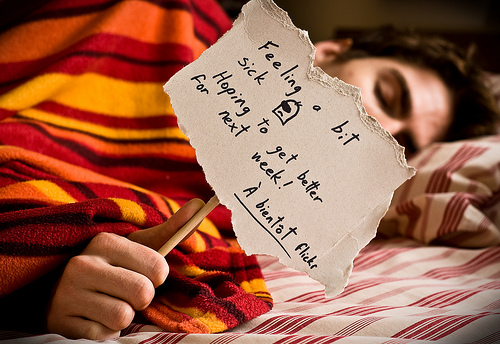 Feeling a bit
sick
Hoping to get better
for next week!
À bientôt flickr